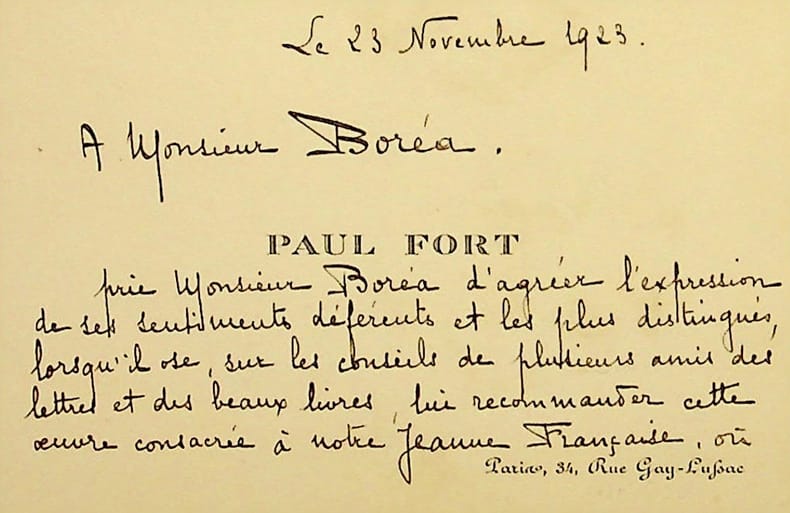 Le 23 Novembre 1923.
A Monsieur Boréa.
PAUL FORT
prie Monsieur Boréa d'agréer l'expression
de ses sentiments déférents et les plus distingués,
lorsqu'il ose, sur les conseils de plusieurs amis des
lettres et des beaux livres, lui recommander cette
œuvre consacrée à notre Jeanne Française, où
Paris, 34, Rue Gay-Lussac